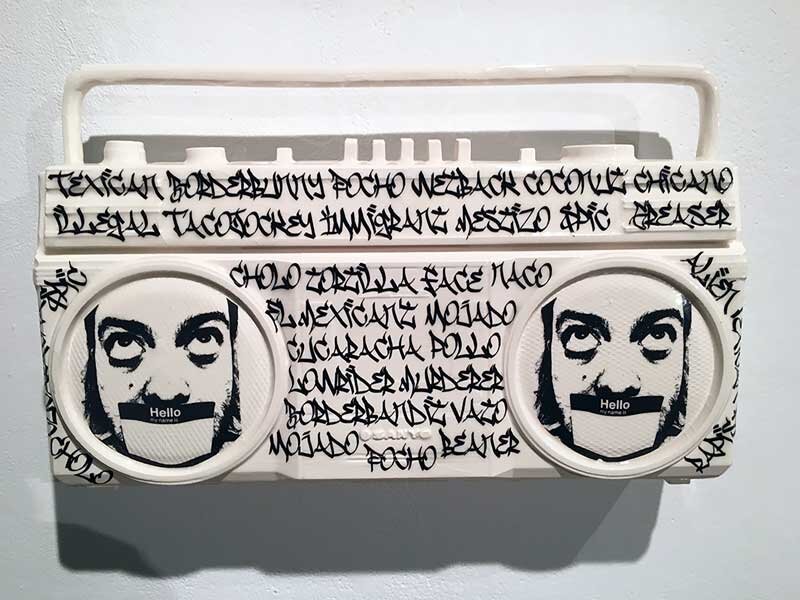 TEXICAN BORDERBUNNY POCHO WETBACK COCONUT CHICANO
ILLEGAL TACOJOCKEY IMMIGRANT MESTIZO SPIC GREASER
CHOLO TORTILLA FACE NACO
MEXICANT MOJADO
CUCARACHA POLLO
LOWRIDER MURDERER
BORDERBANDIT VATO
MOJADO SANYO BEANER
POCHO
ALIEN
CHOLO
Hello
my name is
Hello
my name is